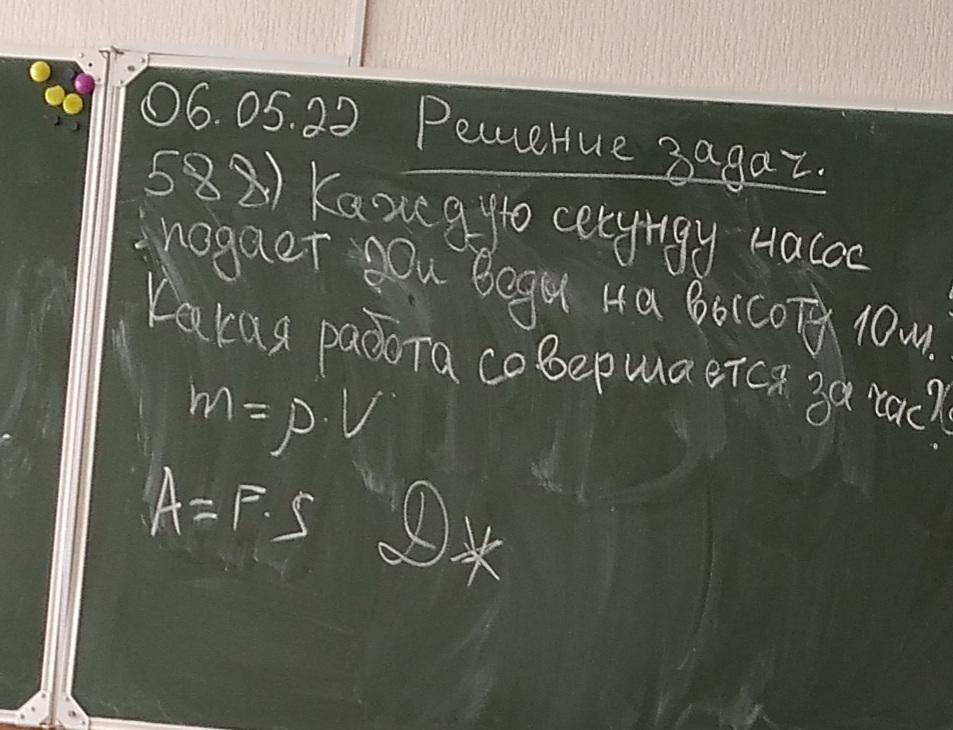 06.05.22 Решение задач.
588) Каждую секунду насос
подает 20л воды на высоту 10м.
Какая работа совершается за час?
m=ρ·V
A=F·S Дж